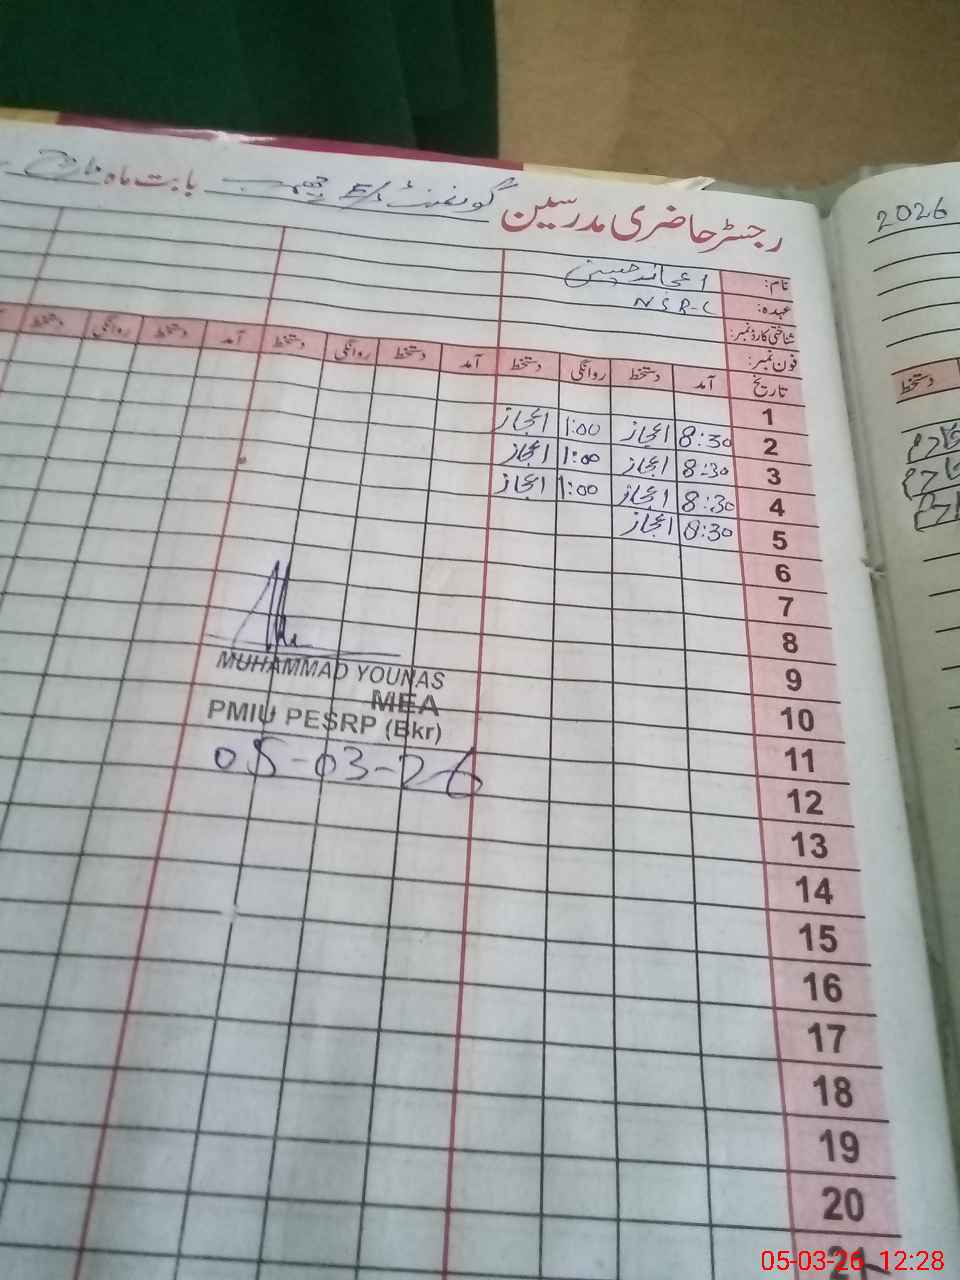 رجسٹر حاضری مدرسین گورنمنٹ E/S بابت ماہ مارچ
2026
نام: اعجاز حسین
عہدہ: NSR-C
شناختی کارڈ نمبر:
فون نمبر:
تاریخ آمد دستخط روانگی دستخط آمد دستخط روانگی دستخط آمد دستخط روانگی دستخط
دستخط
1
2 8:30 اعجاز 1:00 اعجاز
3 8:30 اعجاز 1:00 اعجاز
4 8:30 اعجاز 1:00 اعجاز
5 8:30 اعجاز
6
7
8
9
10
11
12
13
14
15
16
17
18
19
20
21
MUHAMMAD YOUNAS
MEA
PMIU PESRP (Bkr)
05-03-26
05-03-26 12:28